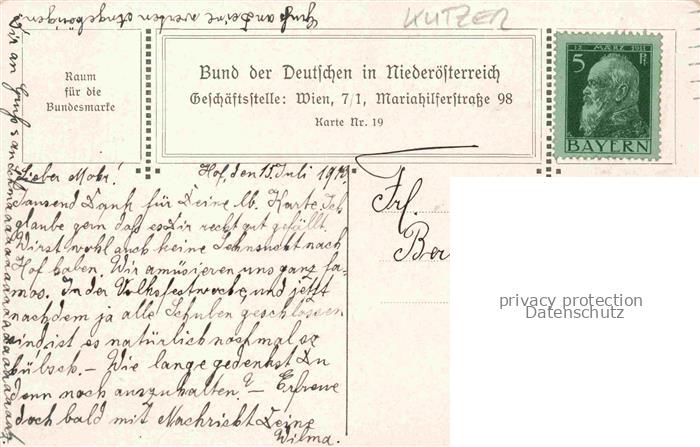 Gruß an Deine werten Angehörigen
KUTZER
Raum
für die
Bundesmarke
Bund der Deutschen in Niederösterreich
Geschäftsstelle: Wien, 7/1, Mariahilferstraße 98
Karte Nr. 19
12 MÄRZ 1911
5 Pf
BAYERN
Lieber Mohr!
Hof, den 15. Juli 1913.
Tausend Dank für Deine lb. Karte. Ich
glaube gern daß es Dir recht gut gefällt.
Wirst wohl auch keine Sehnsucht nach
Hof haben. Wir amüsieren uns ganz fa-
mos. In der Volksfestwoche, und jetzt
nachdem ja alle Schulen geschlossen
sind, ist es natürlich nochmal so
hübsch. – Wie lange gedenkst Du
denn noch auszuhalten? – Erfreue
doch bald mit Nachricht Deine
Wilma.
Frl.
Ber
privacy protection
Datenschutz